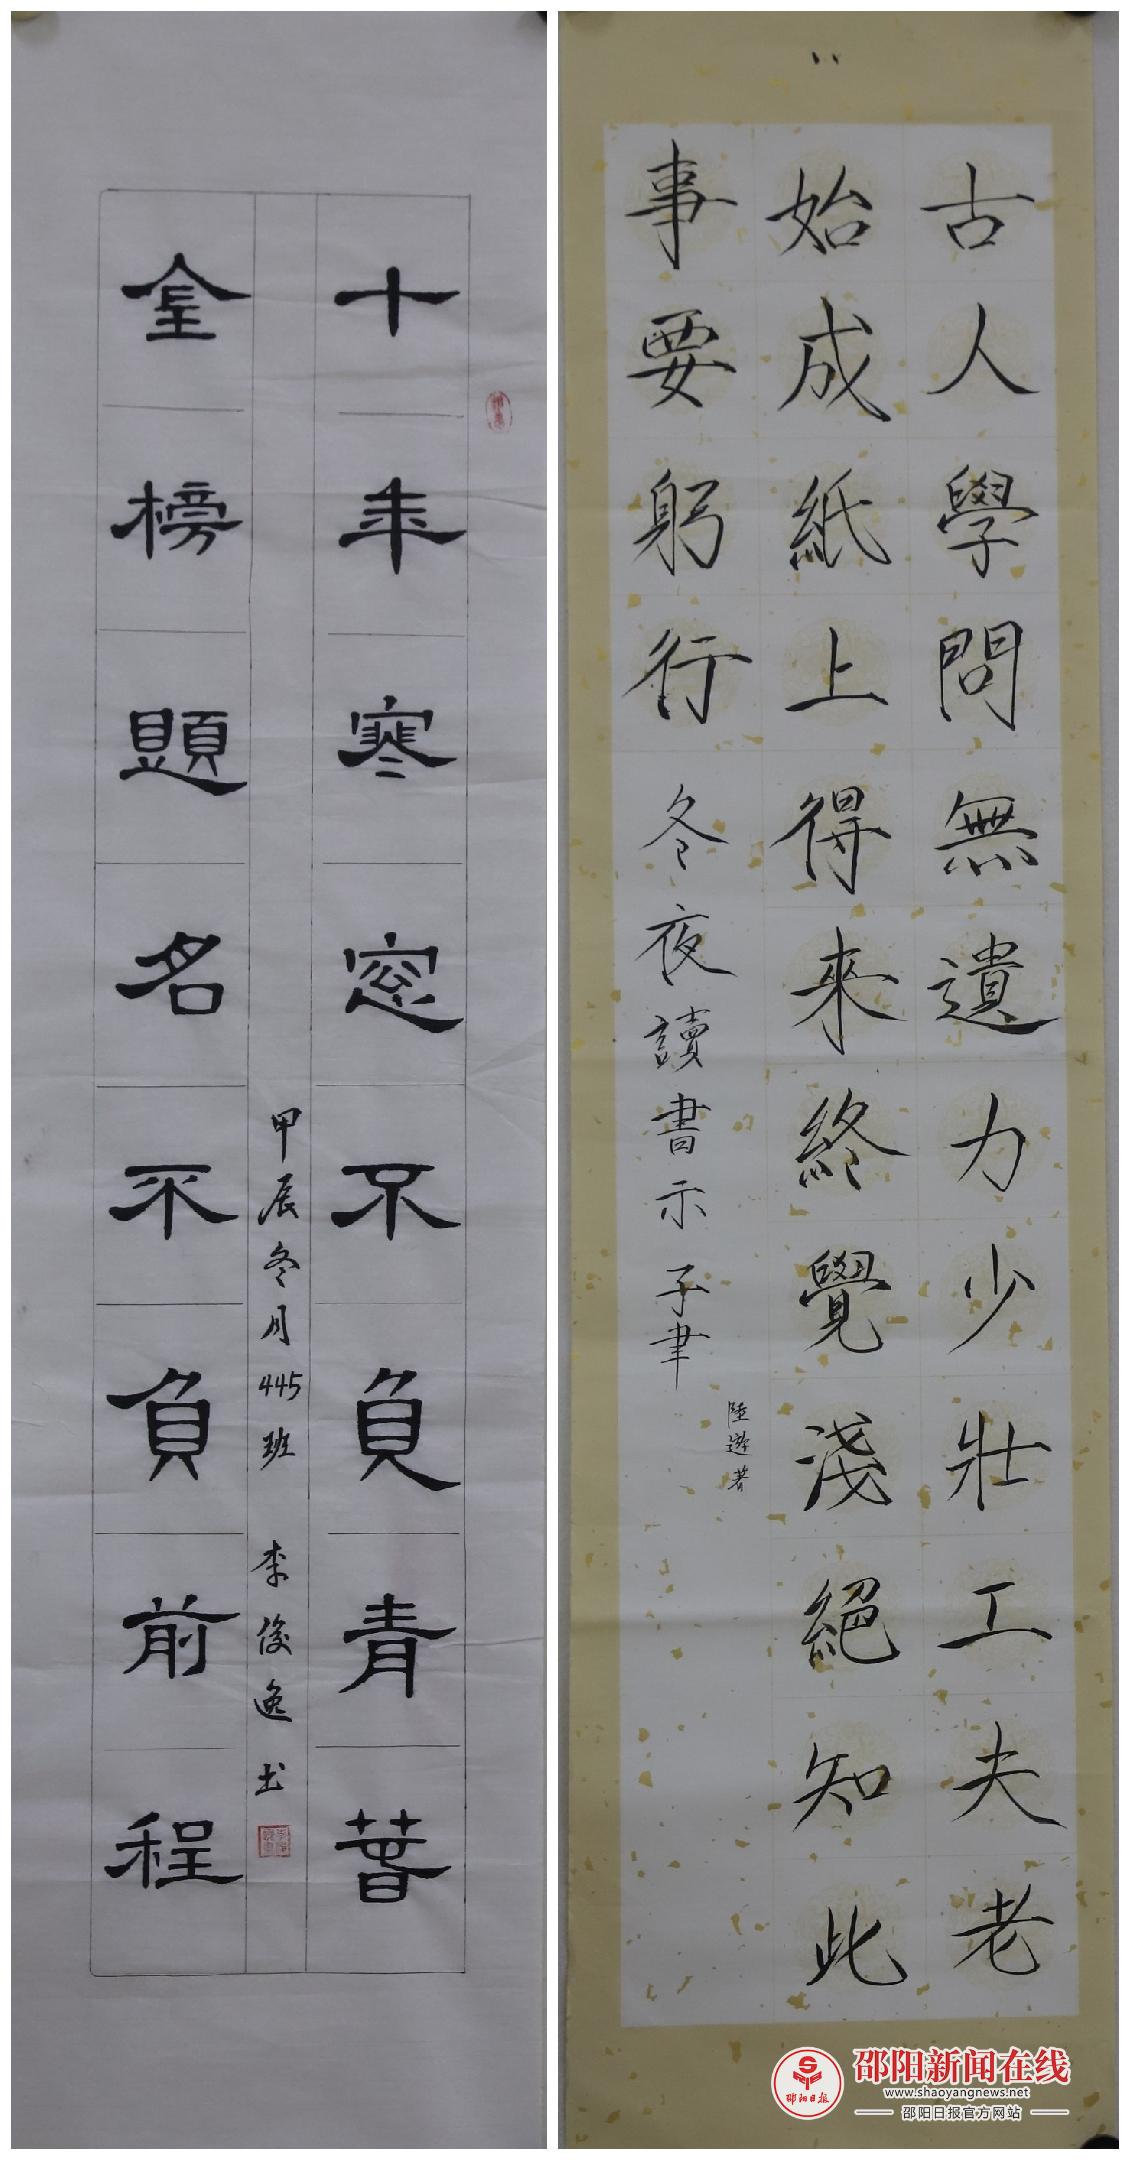 十年寒窓不負青春
金榜題名不負前程
甲辰冬月445班 李俊逸书
古人學問無遺力少壯工夫老
始成紙上得來終覺淺絕知此
事要躬行 冬夜讀書示子聿
陸遊著
邵阳新闻在线
www.shaoyangnews.net
邵阳日报官方网站
邵阳日报